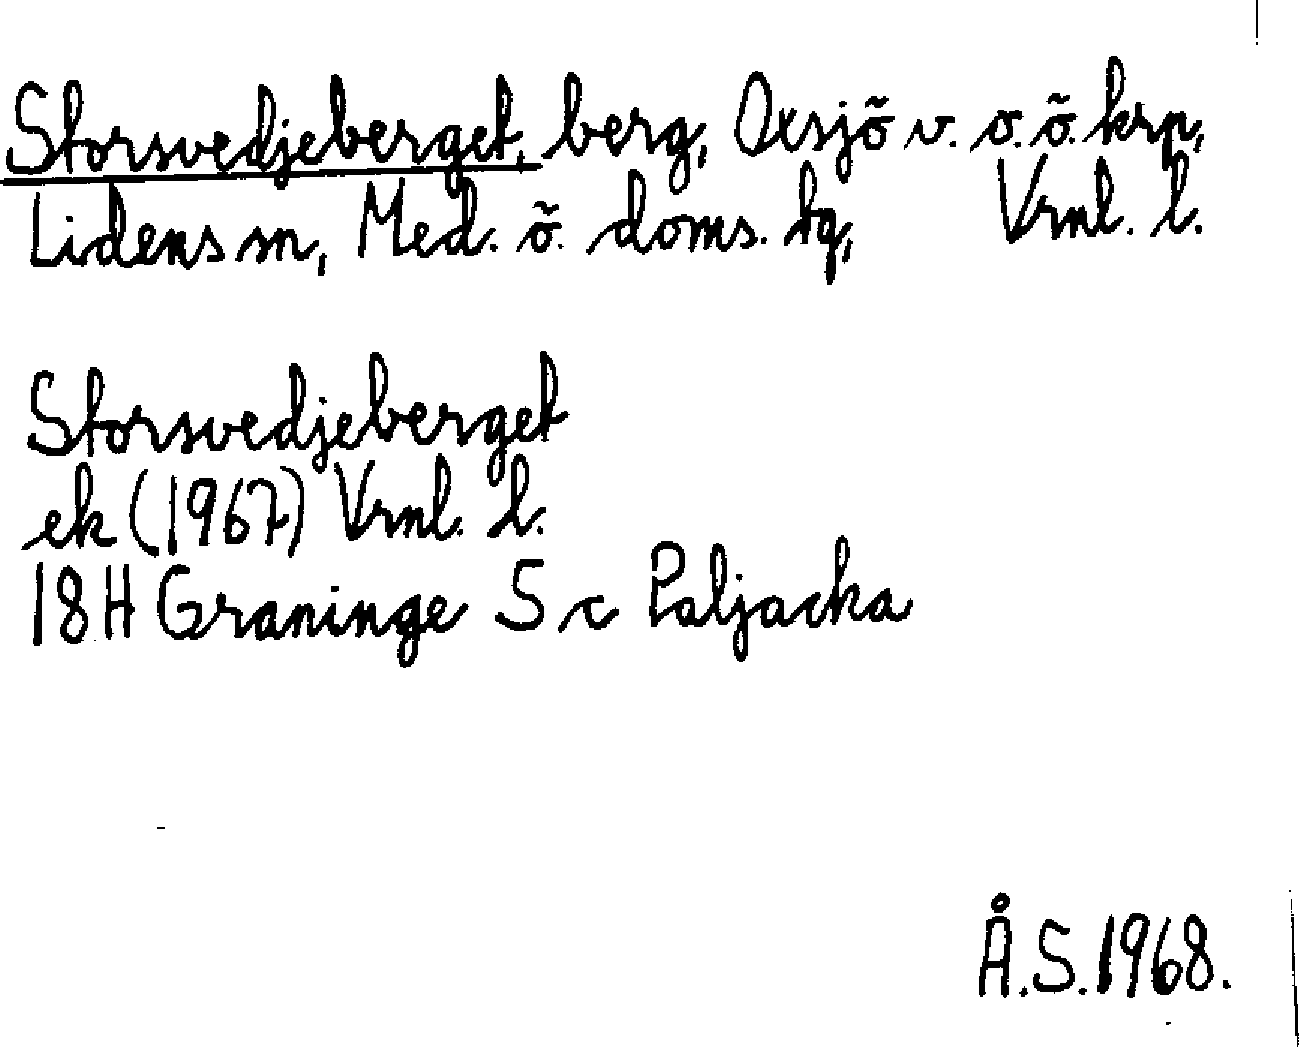 Storsvedjeberget, berg, Oxsjö v. o. ö. krp,
Lidens sn, Med. ö. doms. tg, Vrnl. l.
Storsvedjeberget
ek (1967) Vrnl. l.
18H Graninge S c Paljacka
Å.S. 1968.